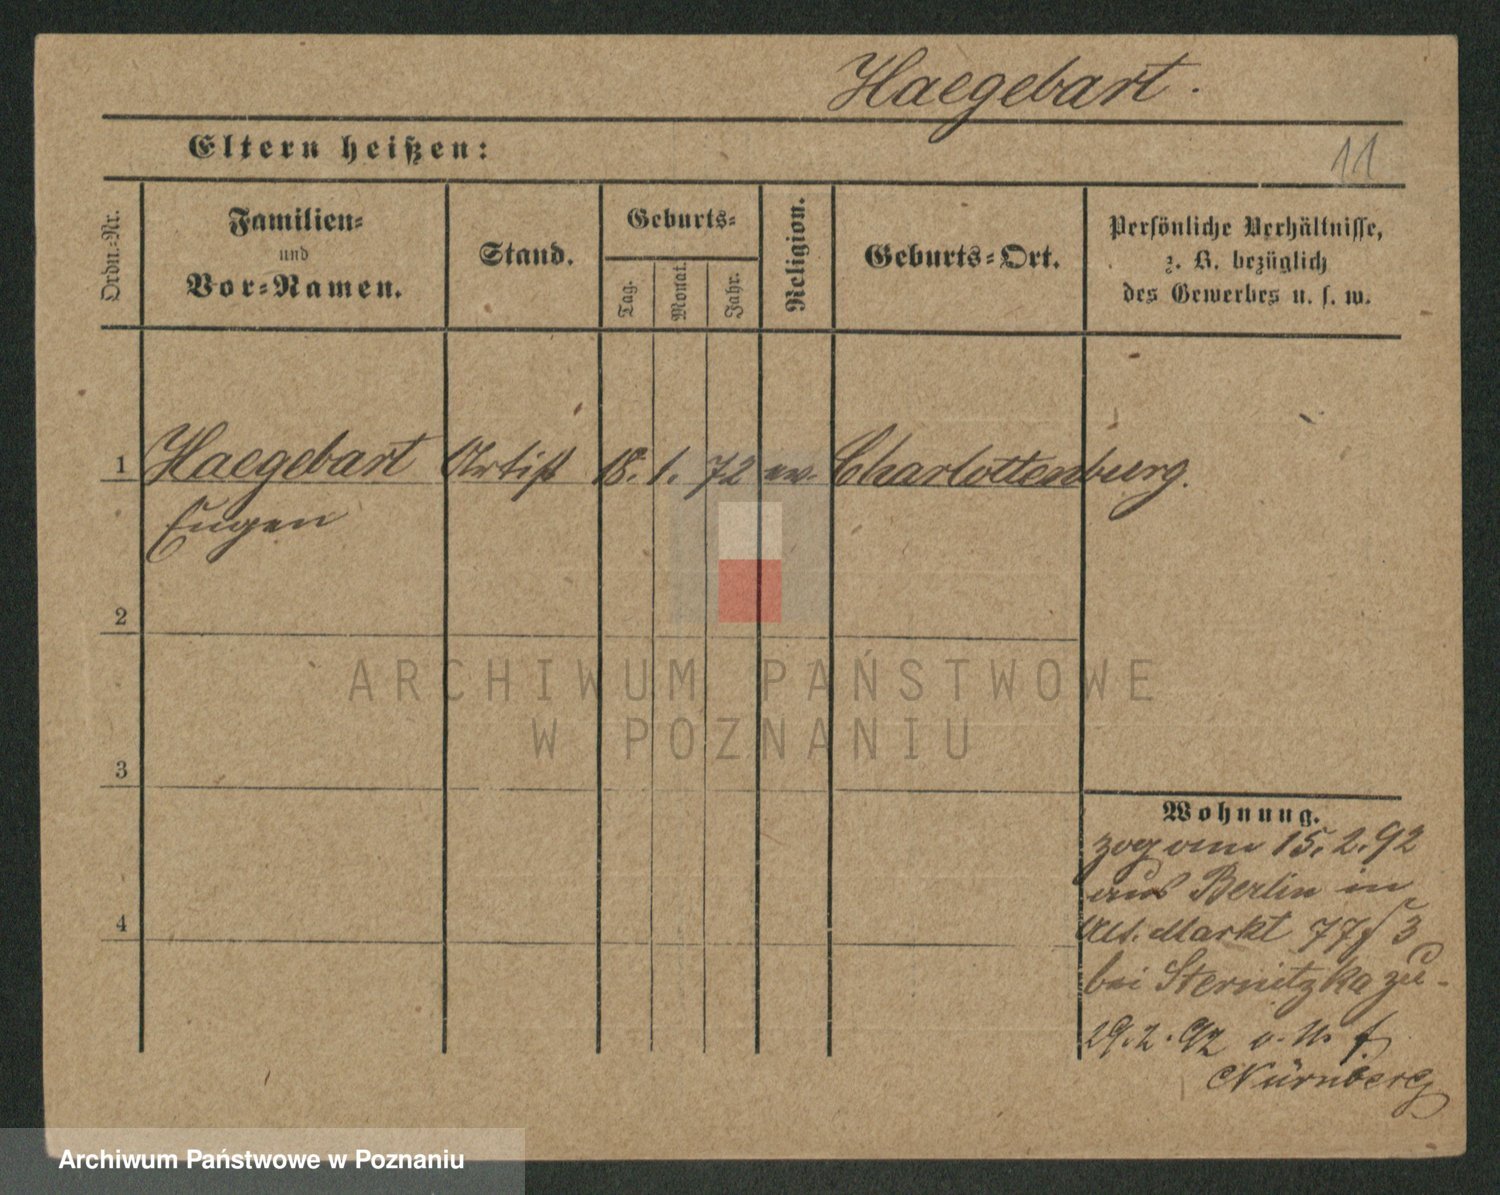 Haegebart.
Eltern heißen:
11
Ordn.=Nr.
Familien=
und
Vor=Namen.
Stand.
Geburts=
Tag.
Monat.
Jahr.
Religion.
Geburts=Ort.
Persönliche Verhältnisse,
z. B. bezüglich
des Gewerbes u. s. w.
1 Haegebart Artist 18. 1. 72 ev. Charlottenburg.
Eugen
2
3
4
Wohnung.
zog am 15. 2. 92
aus Berlin in
Alt. Markt 77
bei Sternitzka zu
29.2.92
Nürnberg
ARCHIWUM PAŃSTWOWE
W POZNANIU
Archiwum Państwowe w Poznaniu